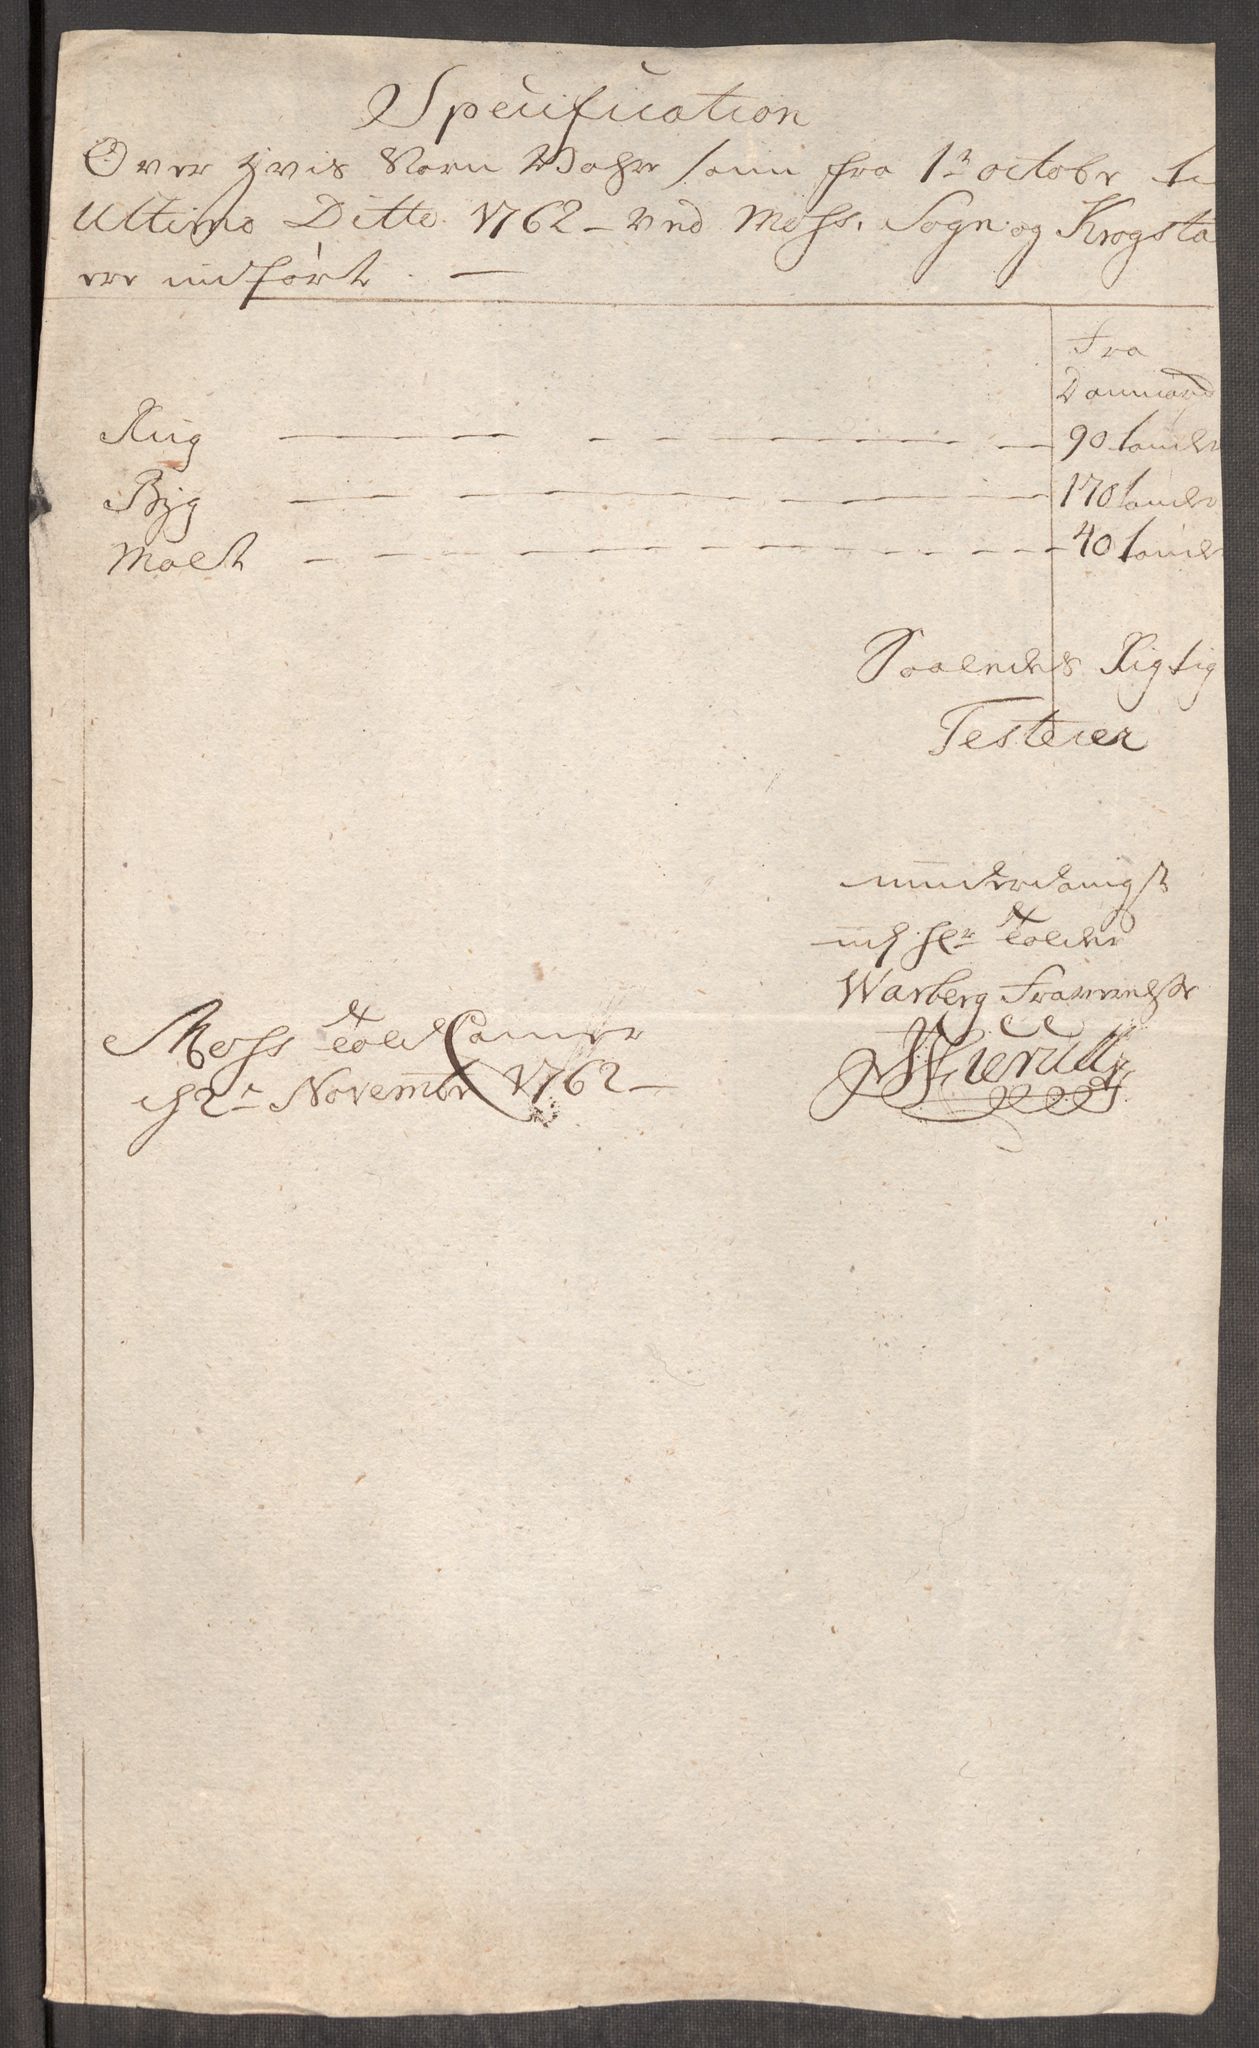 Specification
Over Hvis Korn Wahre som fra 1te octobr ti
Ultimo Ditto 1762 – ved Moss, Sogn og Krogsta
ere indført. —
Fra
Danmarck
Rug 90 tønder
Byg 170 tønder
Malt 40 tønder
Saaledes Rigtig
Testerer
underdanigst
udj Hr Tolder
Warberg Fraværelse
Moss Told Camer
d 2te Novembr 1762 –